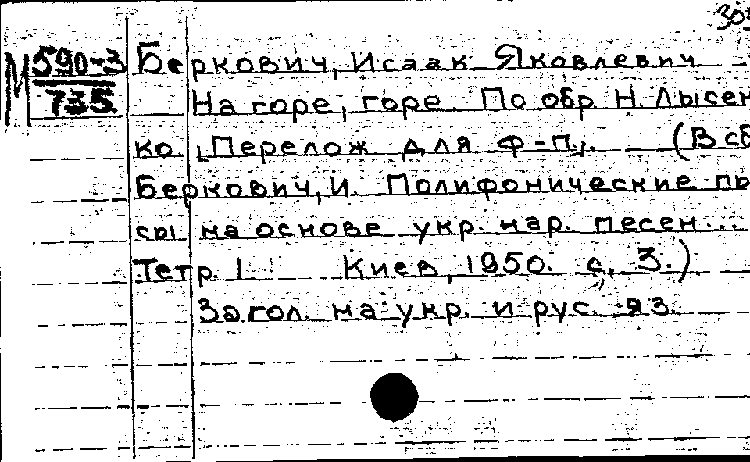 303
М 590-3 Беркович, Исаак Яковлевич -
735 На горе, горе. По обр. Н. Лысен
ко. [Перелож. для ф-п.]. (В сб
Беркович, И. Полифонические пь
сы на основе укр. нар. песен...
Тетр. 1 Киев, 1950. с. 3.)
Загол. на укр. и рус. яз.